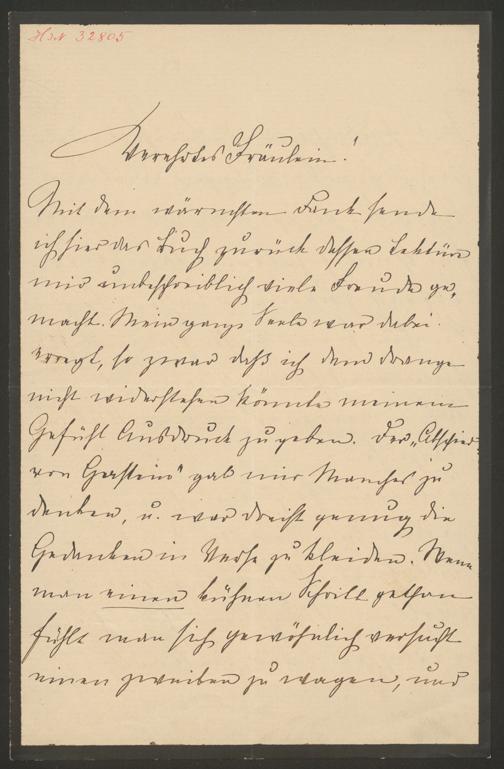 HsN 32805
Verehrtes Fräulein!
Mit dem wärmsten Dank sende
ich hier das Buch zurück dessen Lektüre
mir unbeschreiblich viele Freude ge-
macht. Meine ganze Seele war dabei
erregt, so zwar daß ich dem Drange
nicht widerstehen konnte meinem
Gefühl Ausdruck zu geben. Der „Abschied
von Gastein" gab mir Manches zu
denken, u. war dreist genug die
Gedanken in Verse zu kleiden. Wenn
man einen kühnen Schritt gethan
fühlt man sich gewöhnlich versucht
einen zweiten zu wagen, und